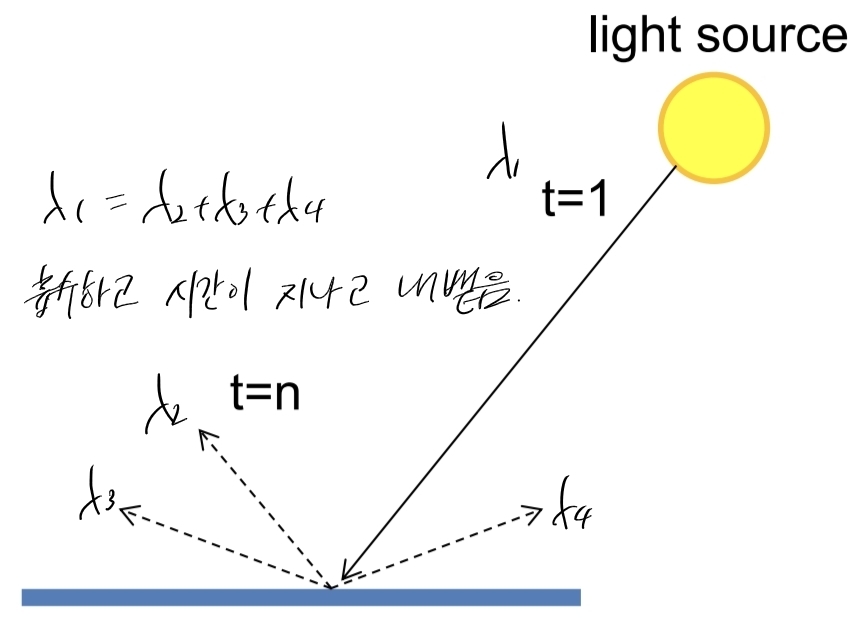 light source
λ1
t=1
λ1 = λ2+λ3+λ4
흡수하고 시간이 지나고 내뱉음.
λ2
t=n
λ3
λ4